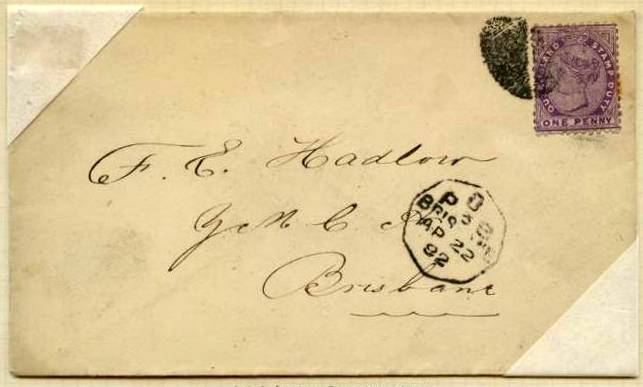 QUEENSLAND STAMP DUTY
ONE PENNY
F. E. Hadlow
Y M C A
Brisbane
P O
BRIS
AP 22
92